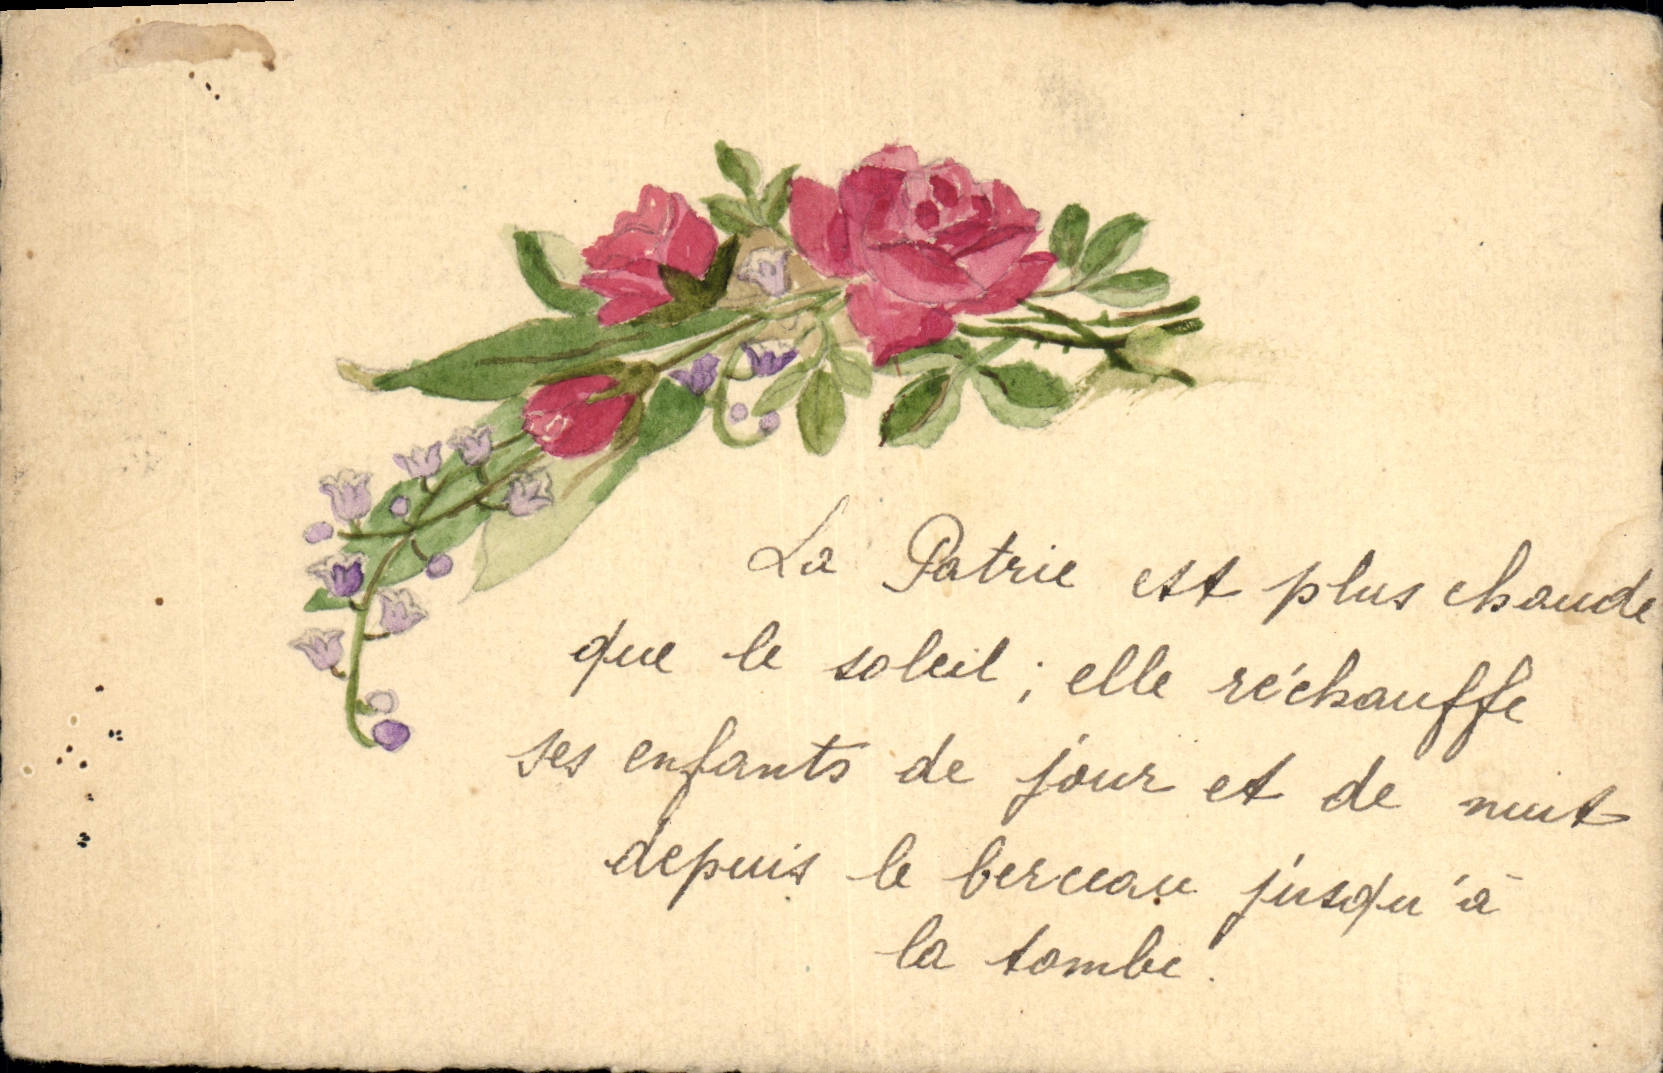 La Patrie est plus chaude
que le soleil ; elle réchauffe
ses enfants de jour et de nuit
depuis le berceau jusqu'à
la tombe.